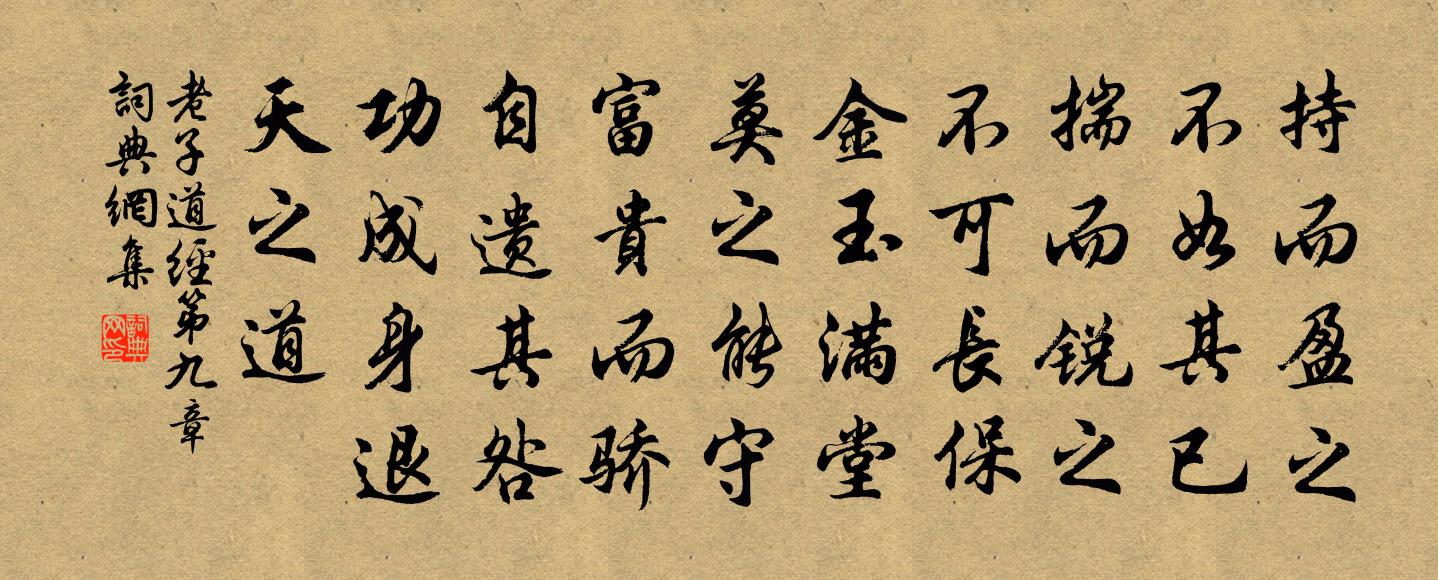 持而盈之
不如其已
揣而锐之
不可長保
金玉滿堂
莫之能守
富貴而骄
自遗其咎
功成身退
天之道
老子道經第九章
詞典網集
詞典
网印